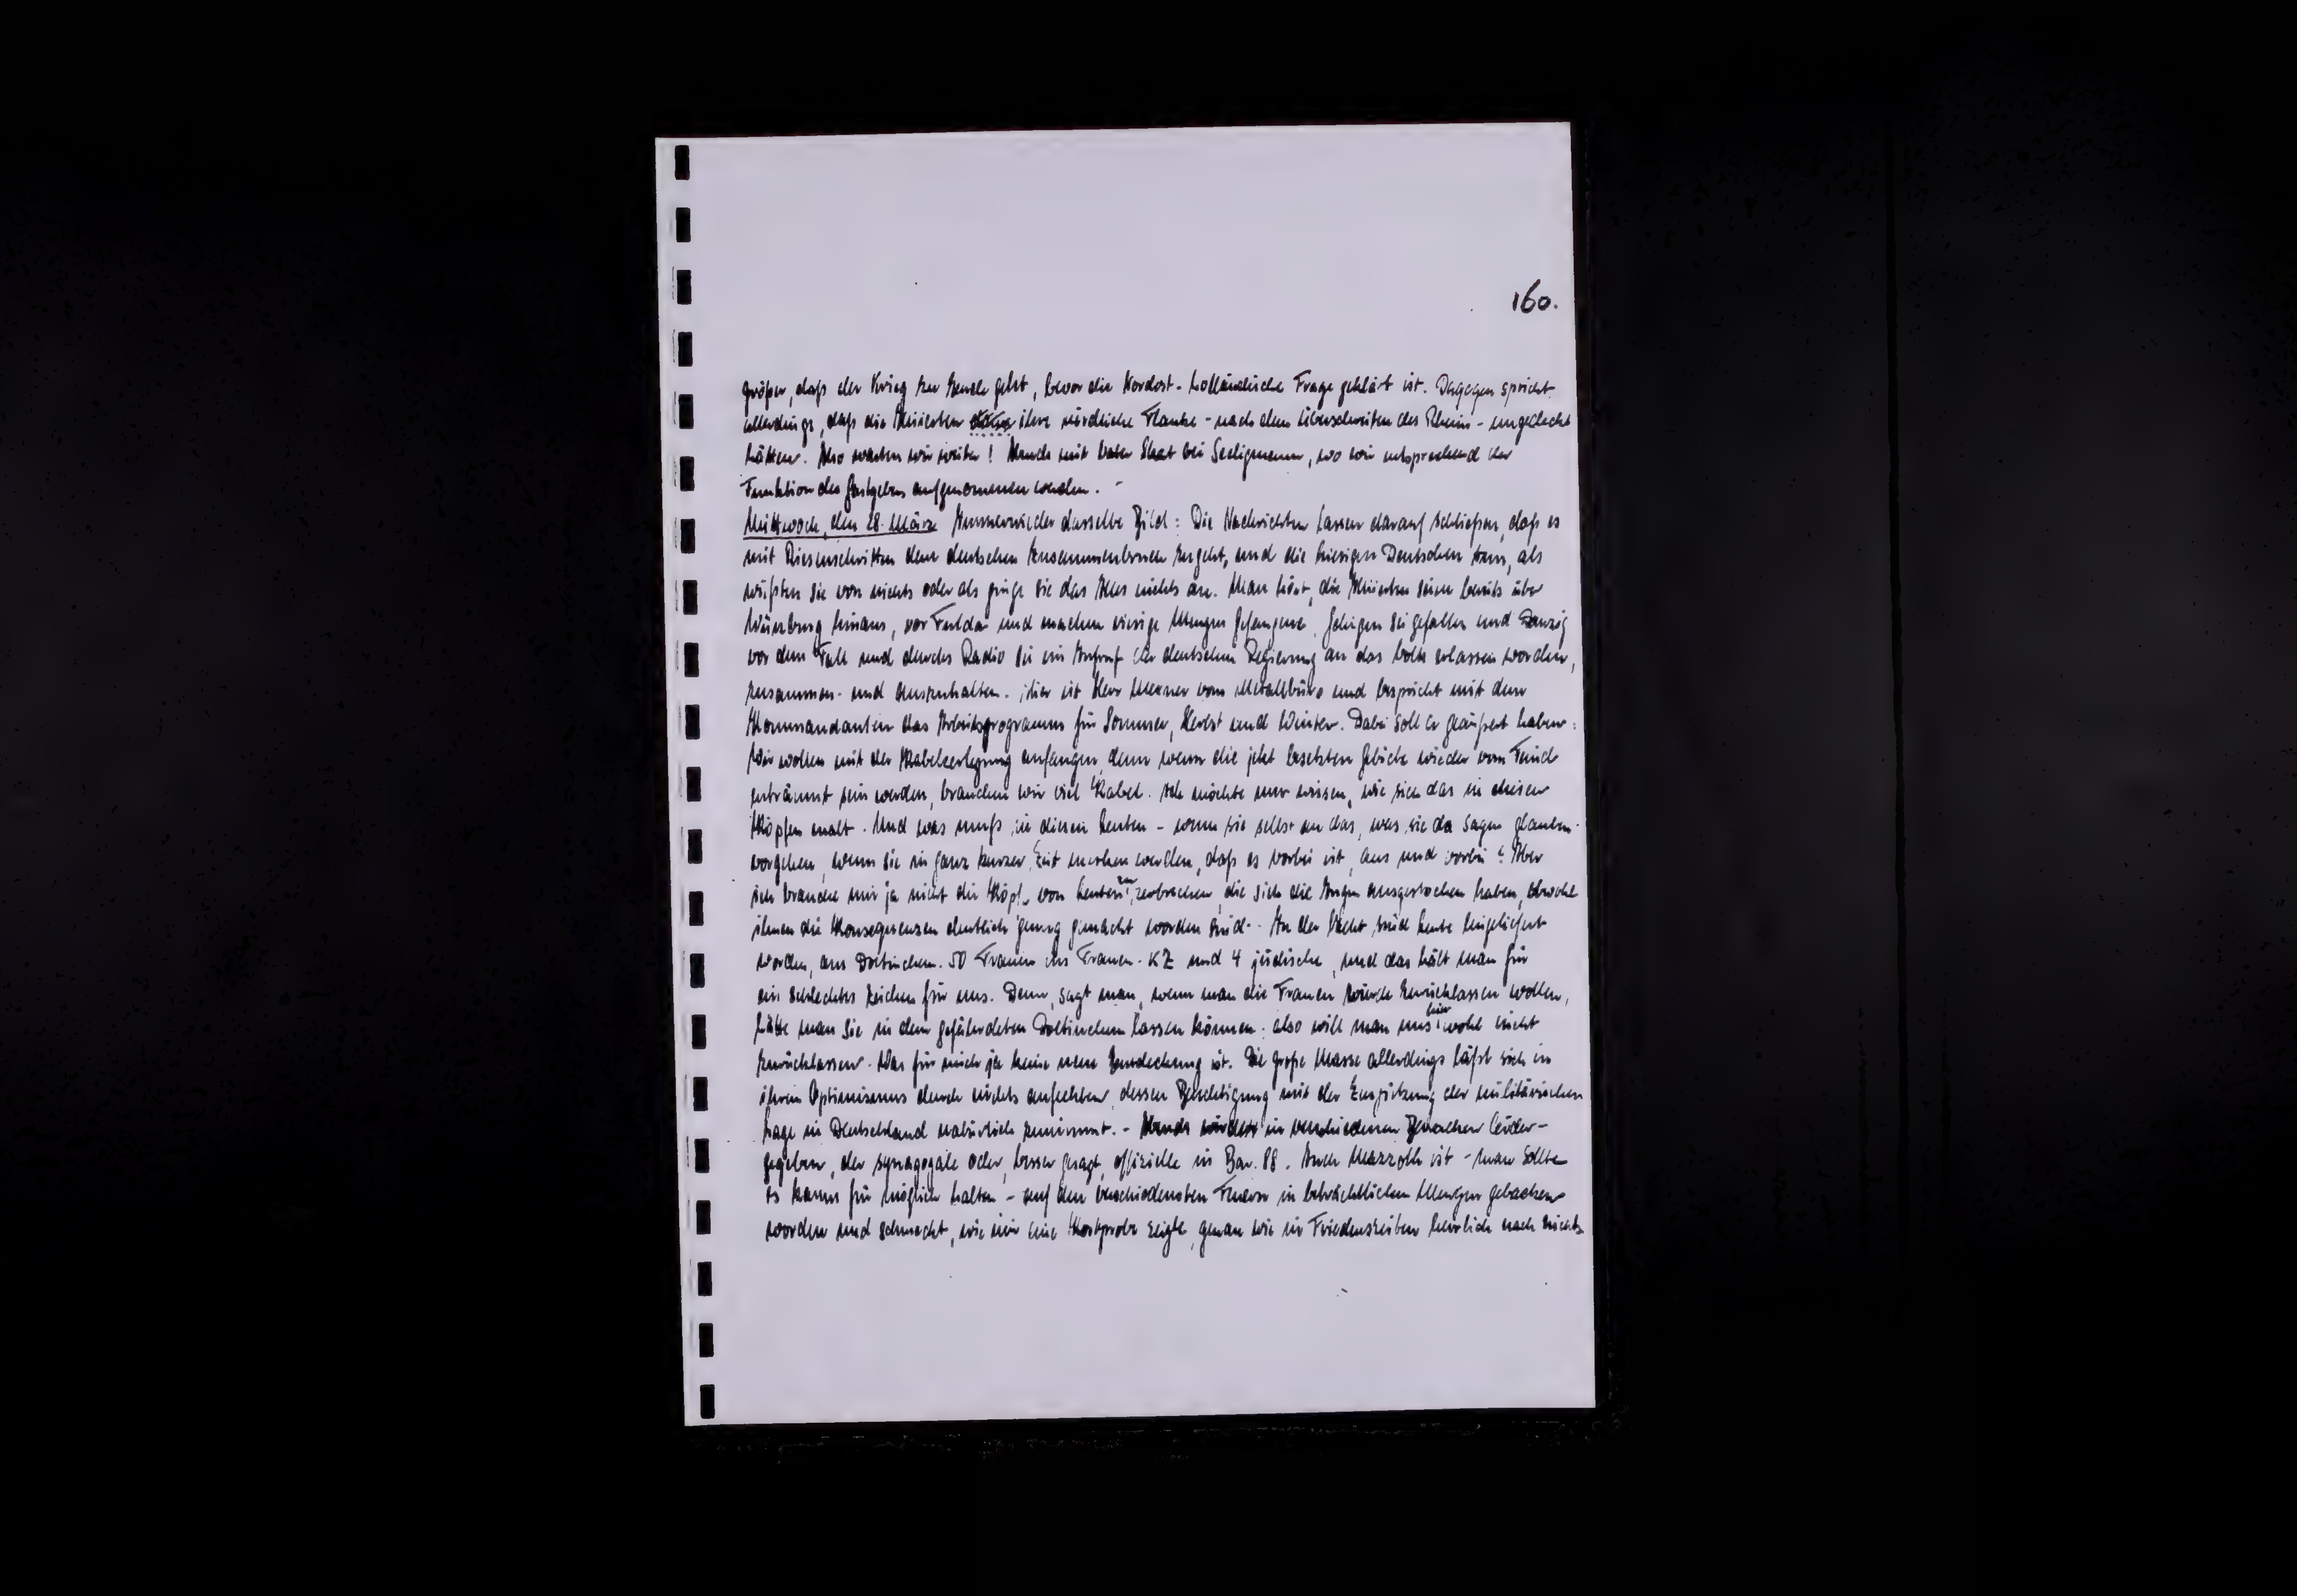 160.
größer, daß der Krieg zu Ende geht, bevor die Nordost-holländische Frage geklärt ist. Dagegen spricht
allerdings, daß die Alliierten ihre nördliche Flanke - nach dem Überschreiten des Rheins - ungedeckt
hätten. Also warten wir weiter! Abends mit Skat bei Seeligmann, wo wir entsprechend der
Funktion des Gastgebers aufgenommen werden. -
Mittwoch, den 28. März Immer wieder dasselbe Bild: Die Nachrichten lassen darauf schließen, daß es
mit Riesenschritten dem deutschen Zusammenbruch zugeht, und die hiesigen Deutschen tun, als
wüßten sie von nichts oder als ginge sie das Alles nichts an. Man hört, die Alliierten seien bereits über
Würzburg hinaus, vor Fulda und machen riesige Mengen Gefangene, sei gefallen und Danzig
vor dem Fall und durchs Radio sei ein Aufruf der deutschen Regierung an das Volk erlassen worden,
zusammen- und auszuhalten. Hier ist Herr vom Metallbüro und bespricht mit dem
Kommandanten das Arbeitsprogramm für Sommer, Herbst und Winter. Dabei soll er geäußert haben:
Wir wollen mit der Kabelzerlegung anfangen, denn wenn die jetzt besetzten Gebiete wieder vom Feind
geräumt sein werden, brauchen wir viel Kabel. Ich möchte nur wissen, wie sich das in diesen
Köpfen malt. Und was muß in diesen Leuten - wenn sie selbst an das, was sie da sagen glauben -
vorgehen, wenn sie in ganz kurzer Zeit merken werden, daß es vorbei ist, aus und vorbei? Aber
ich brauche mir ja nicht die Köpfe von Leuten zu zerbrechen, die sich die Augen ausgestochen haben, obwohl
ihnen die Konsequenzen deutlich genug gemacht worden sind. - In der Nacht sind heute eingeliefert
worden, aus Doetinchem 50 Frauen ins Frauen-KZ und 4 jüdische, und das hält man für
ein schlechtes Zeichen für uns. Denn, sagt man, wenn man die Frauen würde zurücklassen wollen,
hätte man sie in dem gefährdeten Doetinchem lassen können: also will man uns hier wohl nicht
zurücklassen. Was für mich ja keine neue Entdeckung ist. Die große Masse allerdings läßt sich in
ihrem Optimismus durch nichts anfechten, dessen Berechtigung mit der Zuspitzung der militärischen
Lage in Deutschland natürlich zunimmt. - Abends wurden in verschiedenen Baracken Seder-
gegeben, der synagogale oder, besser gesagt, offizielle in Bar. 88. Auch Mazzoth ist - man sollte
es kaum für möglich halten - auf den verschiedensten Feuern in beträchtlichen Mengen gebacken
worden und schmeckt, wie mir eine Kostprobe zeigte, genau wie in Friedenszeiten herrlich nach nichts